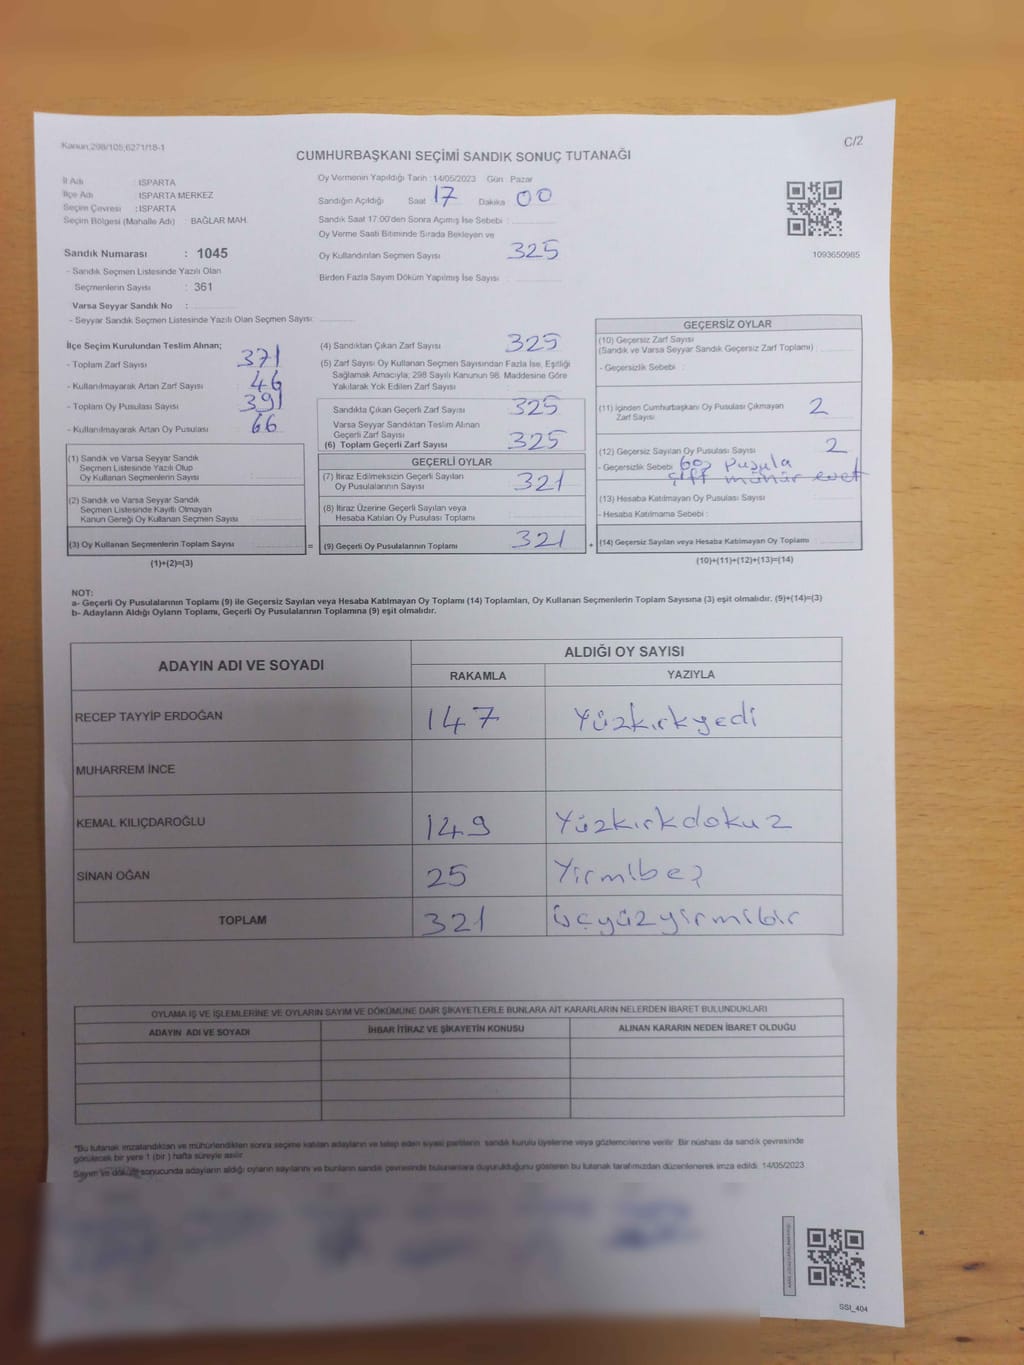 Kanun,298/105,6271/18-1
C/2
CUMHURBAŞKANI SEÇİMİ SANDIK SONUÇ TUTANAĞI
İl Adı : ISPARTA
İlçe Adı : ISPARTA MERKEZ
Seçim Çevresi : ISPARTA
Seçim Bölgesi (Mahalle Adı) : BAĞLAR MAH.
Sandık Numarası : 1045
- Sandık Seçmen Listesinde Yazılı Olan
Seçmenlerin Sayısı : 361
Varsa Seyyar Sandık No :
- Seyyar Sandık Seçmen Listesinde Yazılı Olan Seçmen Sayısı:
Oy Vermenin Yapıldığı Tarih : 14/05/2023 Gün Pazar
Sandığın Açıldığı Saat : 17 Dakika 00
Sandık Saat 17:00'den Sonra Açımış İse Sebebi :
Oy Verme Saati Bitiminde Sırada Bekleyen ve
Oy Kullandırılan Seçmen Sayısı 325
Birden Fazla Sayım Döküm Yapılmış İse Sayısı :
1093650985
İlçe Seçim Kurulundan Teslim Alınan;
- Toplam Zarf Sayısı : 371
- Kullanılmayarak Artan Zarf Sayısı : 46
- Toplam Oy Pusulası Sayısı : 391
- Kullanılmayarak Artan Oy Pusulası : 66
(1) Sandık ve Varsa Seyyar Sandık
Seçmen Listesinde Yazılı Olup
Oy Kullanan Seçmenlerin Sayısı :
(2) Sandık ve Varsa Seyyar Sandık
Seçmen Listesinde Kayıtlı Olmayan
Kanun Gereği Oy Kullanan Seçmen Sayısı :
(3) Oy Kullanan Seçmenlerin Toplam Sayısı : =
(1)+(2)=(3)
(4) Sandıktan Çıkan Zarf Sayısı : 325
(5) Zarf Sayısı Oy Kullanan Seçmen Sayısından Fazla İse, Eşitliği
Sağlamak Amacıyla, 298 Sayılı Kanunun 98. Maddesine Göre
Yakılarak Yok Edilen Zarf Sayısı :
Sandıkta Çıkan Geçerli Zarf Sayısı : 325
Varsa Seyyar Sandıktan Teslim Alınan
Geçerli Zarf Sayısı :
(6) Toplam Geçerli Zarf Sayısı : 325
GEÇERLİ OYLAR
(7) İtiraz Edilmeksizin Geçerli Sayılan
Oy Pusulalarının Sayısı : 321
(8) İtiraz Üzerine Geçerli Sayılan veya
Hesaba Katılan Oy Pusulası Toplamı :
(9) Geçerli Oy Pusulalarının Toplamı : 321 +
GEÇERSİZ OYLAR
(10) Geçersiz Zarf Sayısı
(Sandık ve Varsa Seyyar Sandık Geçersiz Zarf Toplamı) :
- Geçersizlik Sebebi :
(11) İçinden Cumhurbaşkanı Oy Pusulası Çıkmayan
Zarf Sayısı : 2
(12) Geçersiz Sayılan Oy Pusulası Sayısı : 2
- Geçersizlik Sebebi : boş pusula
çift mühür evet
(13) Hesaba Katılmayan Oy Pusulası Sayısı :
- Hesaba Katılmama Sebebi :
(14) Geçersiz Sayılan veya Hesaba Katılmayan Oy Toplamı :
(10)+(11)+(12)+(13)=(14)
NOT:
a- Geçerli Oy Pusulalarının Toplamı (9) ile Geçersiz Sayılan veya Hesaba Katılmayan Oy Toplamı (14) Toplamları, Oy Kullanan Seçmenlerin Toplam Sayısına (3) eşit olmalıdır. (9)+(14)=(3)
b- Adayların Aldığı Oyların Toplamı, Geçerli Oy Pusulalarının Toplamına (9) eşit olmalıdır.
ADAYIN ADI VE SOYADI ALDIĞI OY SAYISI
RAKAMLA YAZIYLA
RECEP TAYYİP ERDOĞAN 147 Yüzkırkyedi
MUHARREM İNCE
KEMAL KILIÇDAROĞLU 149 Yüzkırkdokuz
SİNAN OĞAN 25 Yirmibeş
TOPLAM 321 üçyüzyirmibir
OYLAMA İŞ VE İŞLEMLERİNE VE OYLARIN SAYIM VE DÖKÜMÜNE DAİR ŞİKAYETLERLE BUNLARA AİT KARARLARIN NELERDEN İBARET BULUNDUKLARI
ADAYIN ADI VE SOYADI İHBAR İTİRAZ VE ŞİKAYETİN KONUSU ALINAN KARARIN NEDEN İBARET OLDUĞU
*Bu tutanak imzalandıktan ve mühürlendikten sonra seçime katılan adayların ve talep eden siyasi partilerin sandık kurulu üyelerine veya gözlemcilerine verilir. Bir nüshası da sandık çevresinde
görülecek bir yere 1 (bir) hafta süreyle asılır.
Sayım ve döküm sonucunda adayların aldığı oyların sayılarını ve bunların sandık çevresinde bulunanlara duyurulduğunu gösteren bu tutanak tarafımızdan düzenlenerek imza edildi. 14/05/2023
SSI_404